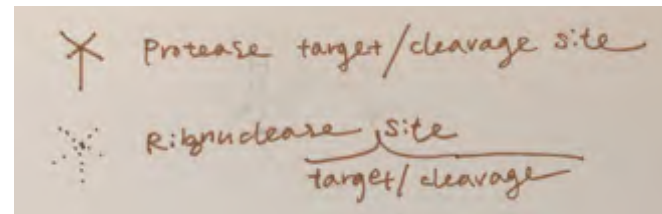 Protease target/cleavage site
Ribonuclease site
target/cleavage